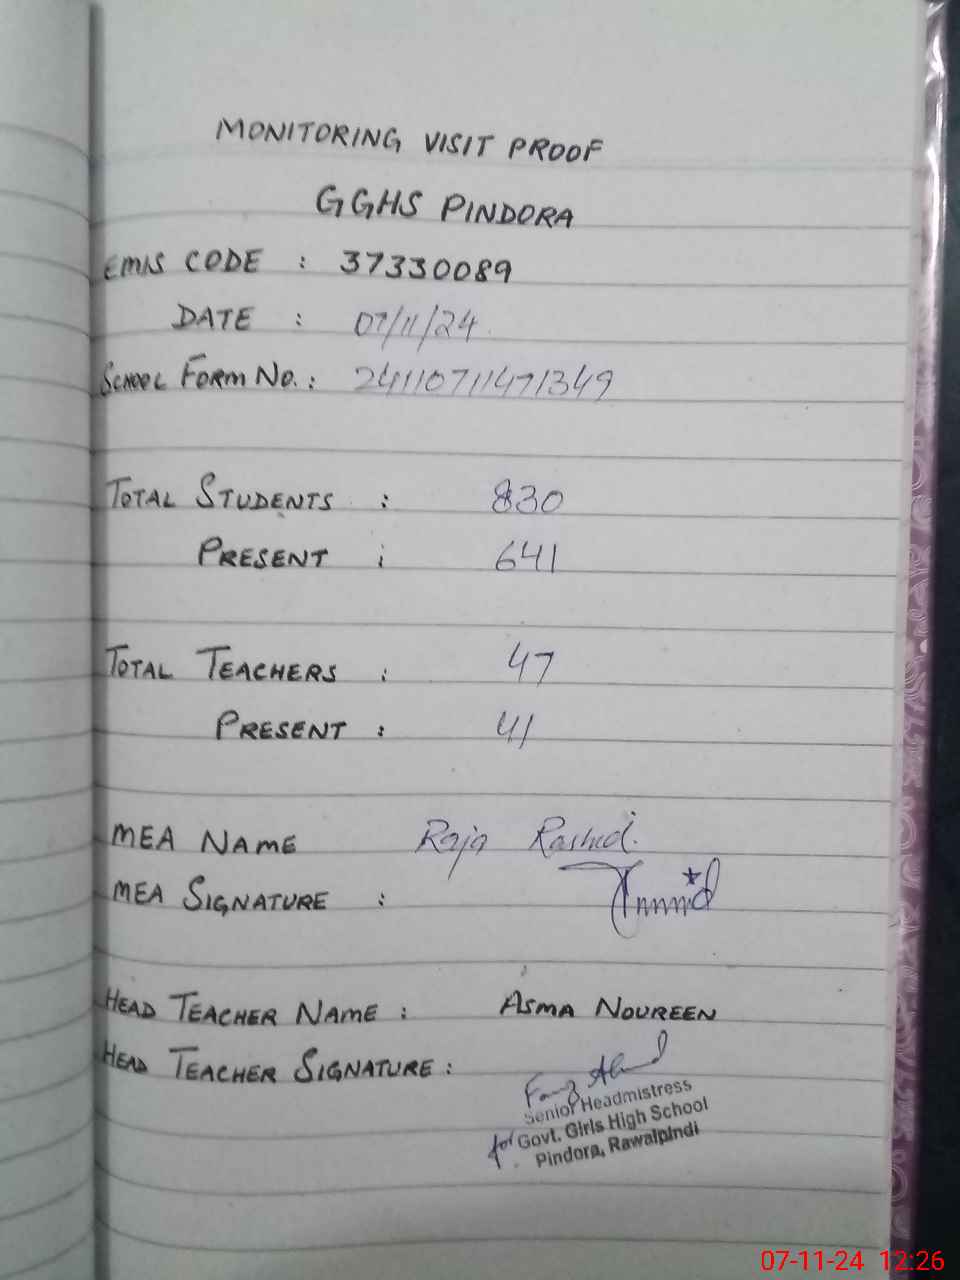 MONITORING VISIT PROOF
GGHS PINDORA
EMIS CODE : 37330089
DATE : 07/11/24
SCHOOL FORM NO. : 24110711471349
TOTAL STUDENTS : 830
PRESENT : 641
TOTAL TEACHERS : 47
PRESENT : 41
MEA NAME Raja Rashid.
MEA SIGNATURE :
HEAD TEACHER NAME : ASMA NOUREEN
HEAD TEACHER SIGNATURE :
Senior Headmistress
for Govt. Girls High School
Pindora, Rawalpindi
07-11-24 12:26